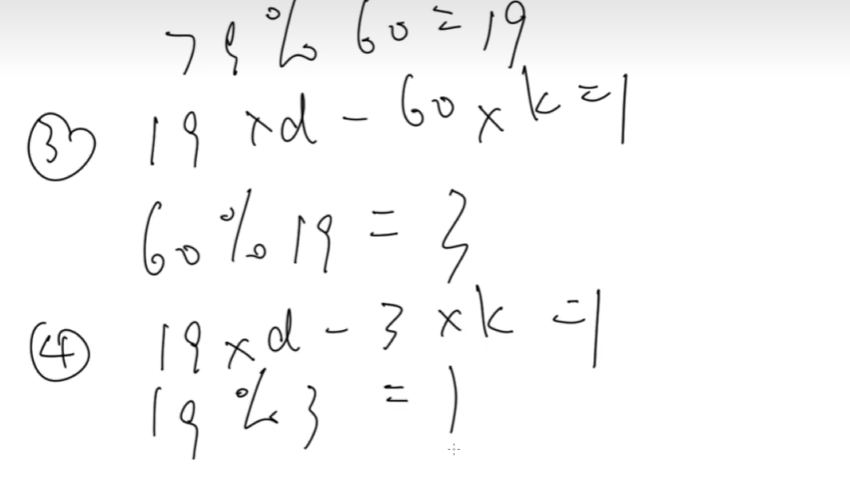 79 % 60 = 19
③ 19 × d - 60 × k = 1
60 % 19 = 3
④ 19 × d - 3 × k = 1
19 % 3 = 1